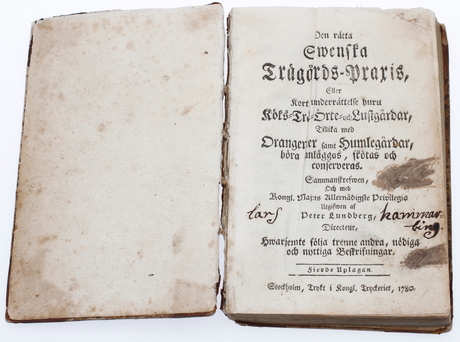 Den rätta
Swenska
Trägårds-Praxis,
Eller
Kort underrättelse huru
Köks-Trä-Örte-och Lustgårdar,
Tillika med
Orangerier samt Humlegårdar,
böra anläggas, skötas och
conserveras.
Sammanskrefwen,
Och med
Kongl. Maj:ts Allernådigste Privilegio
Utgifwen af
Peter Lundberg,
Directeur.
lars hammar
bing
Hwarjemte följa trenne andra, nödiga
och nyttiga Beskrifningar.
Fierde Uplagan.
Stockholm, Tryckt i Kongl. Tryckeriet, 1780.